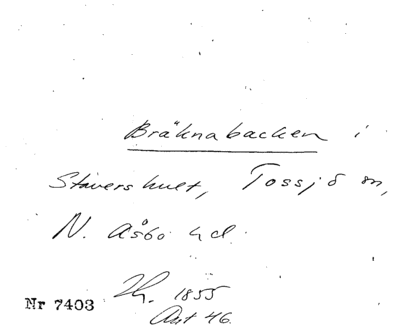 Bräknabacken i
Stavershult, Tossjö sn,
N. Åsbo hd.
1855
Ant 46.
Nr 7403